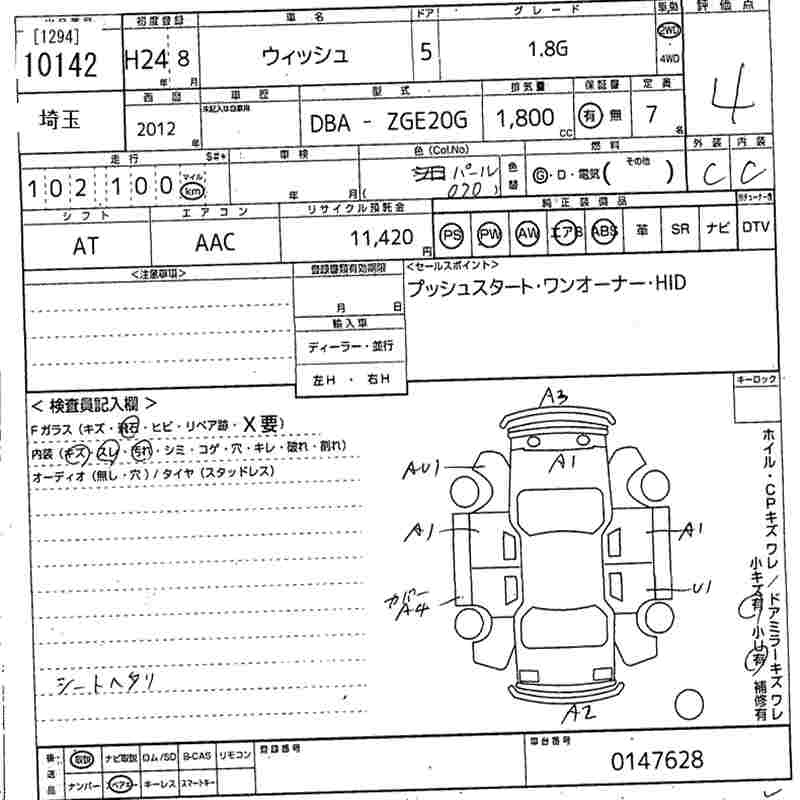 [1294]
10142
初度登録
H24 8
年 月
車名
ウィッシュ
ドア
5
グレード
1.8G
2WD
4WD
評価点
4
埼玉
西暦
2012
年
車歴
型式
DBA - ZGE20G
排気量
1,800
CC
保証書
有 無
定員
7
名
走行
102,100
マイル
km
車検
年 月
色 (Col.No)
パール
( 070 )
色替
燃料
G・D・電気( その他 )
外装
C
内装
C
シフト
AT
エアコン
AAC
リサイクル預託金
11,420
円
純正装備品
PS PW AW エアB ABS 革 SR ナビ DTV
<注意事項>
登録書類有効期限
月 日
輸入車
ディーラー・並行
左H ・ 右H
<セールスポイント>
プッシュスタート・ワンオーナー・HID
< 検査員記入欄 >
Fガラス (キズ・飛石・ヒビ・リペア跡・X要)
内装 (キズ・スレ・汚れ・シミ・コゲ・穴・キレ・破れ・割れ)
オーディオ (無し・穴) / タイヤ (スタッドレス)
シートヘタリ
A3
A1
AU1
A1
A1
カバー
A4
U1
A2
キーロック
ホイル・CPキズ ワレ / ドアミラーキズ ワレ
小キズ有 小U有 補修有
後送品
取説 ナビ取説 ロム/SD B-CAS リモコン
ナンバー スペアキー キーレス スマートキー
登録番号
車台番号
0147628